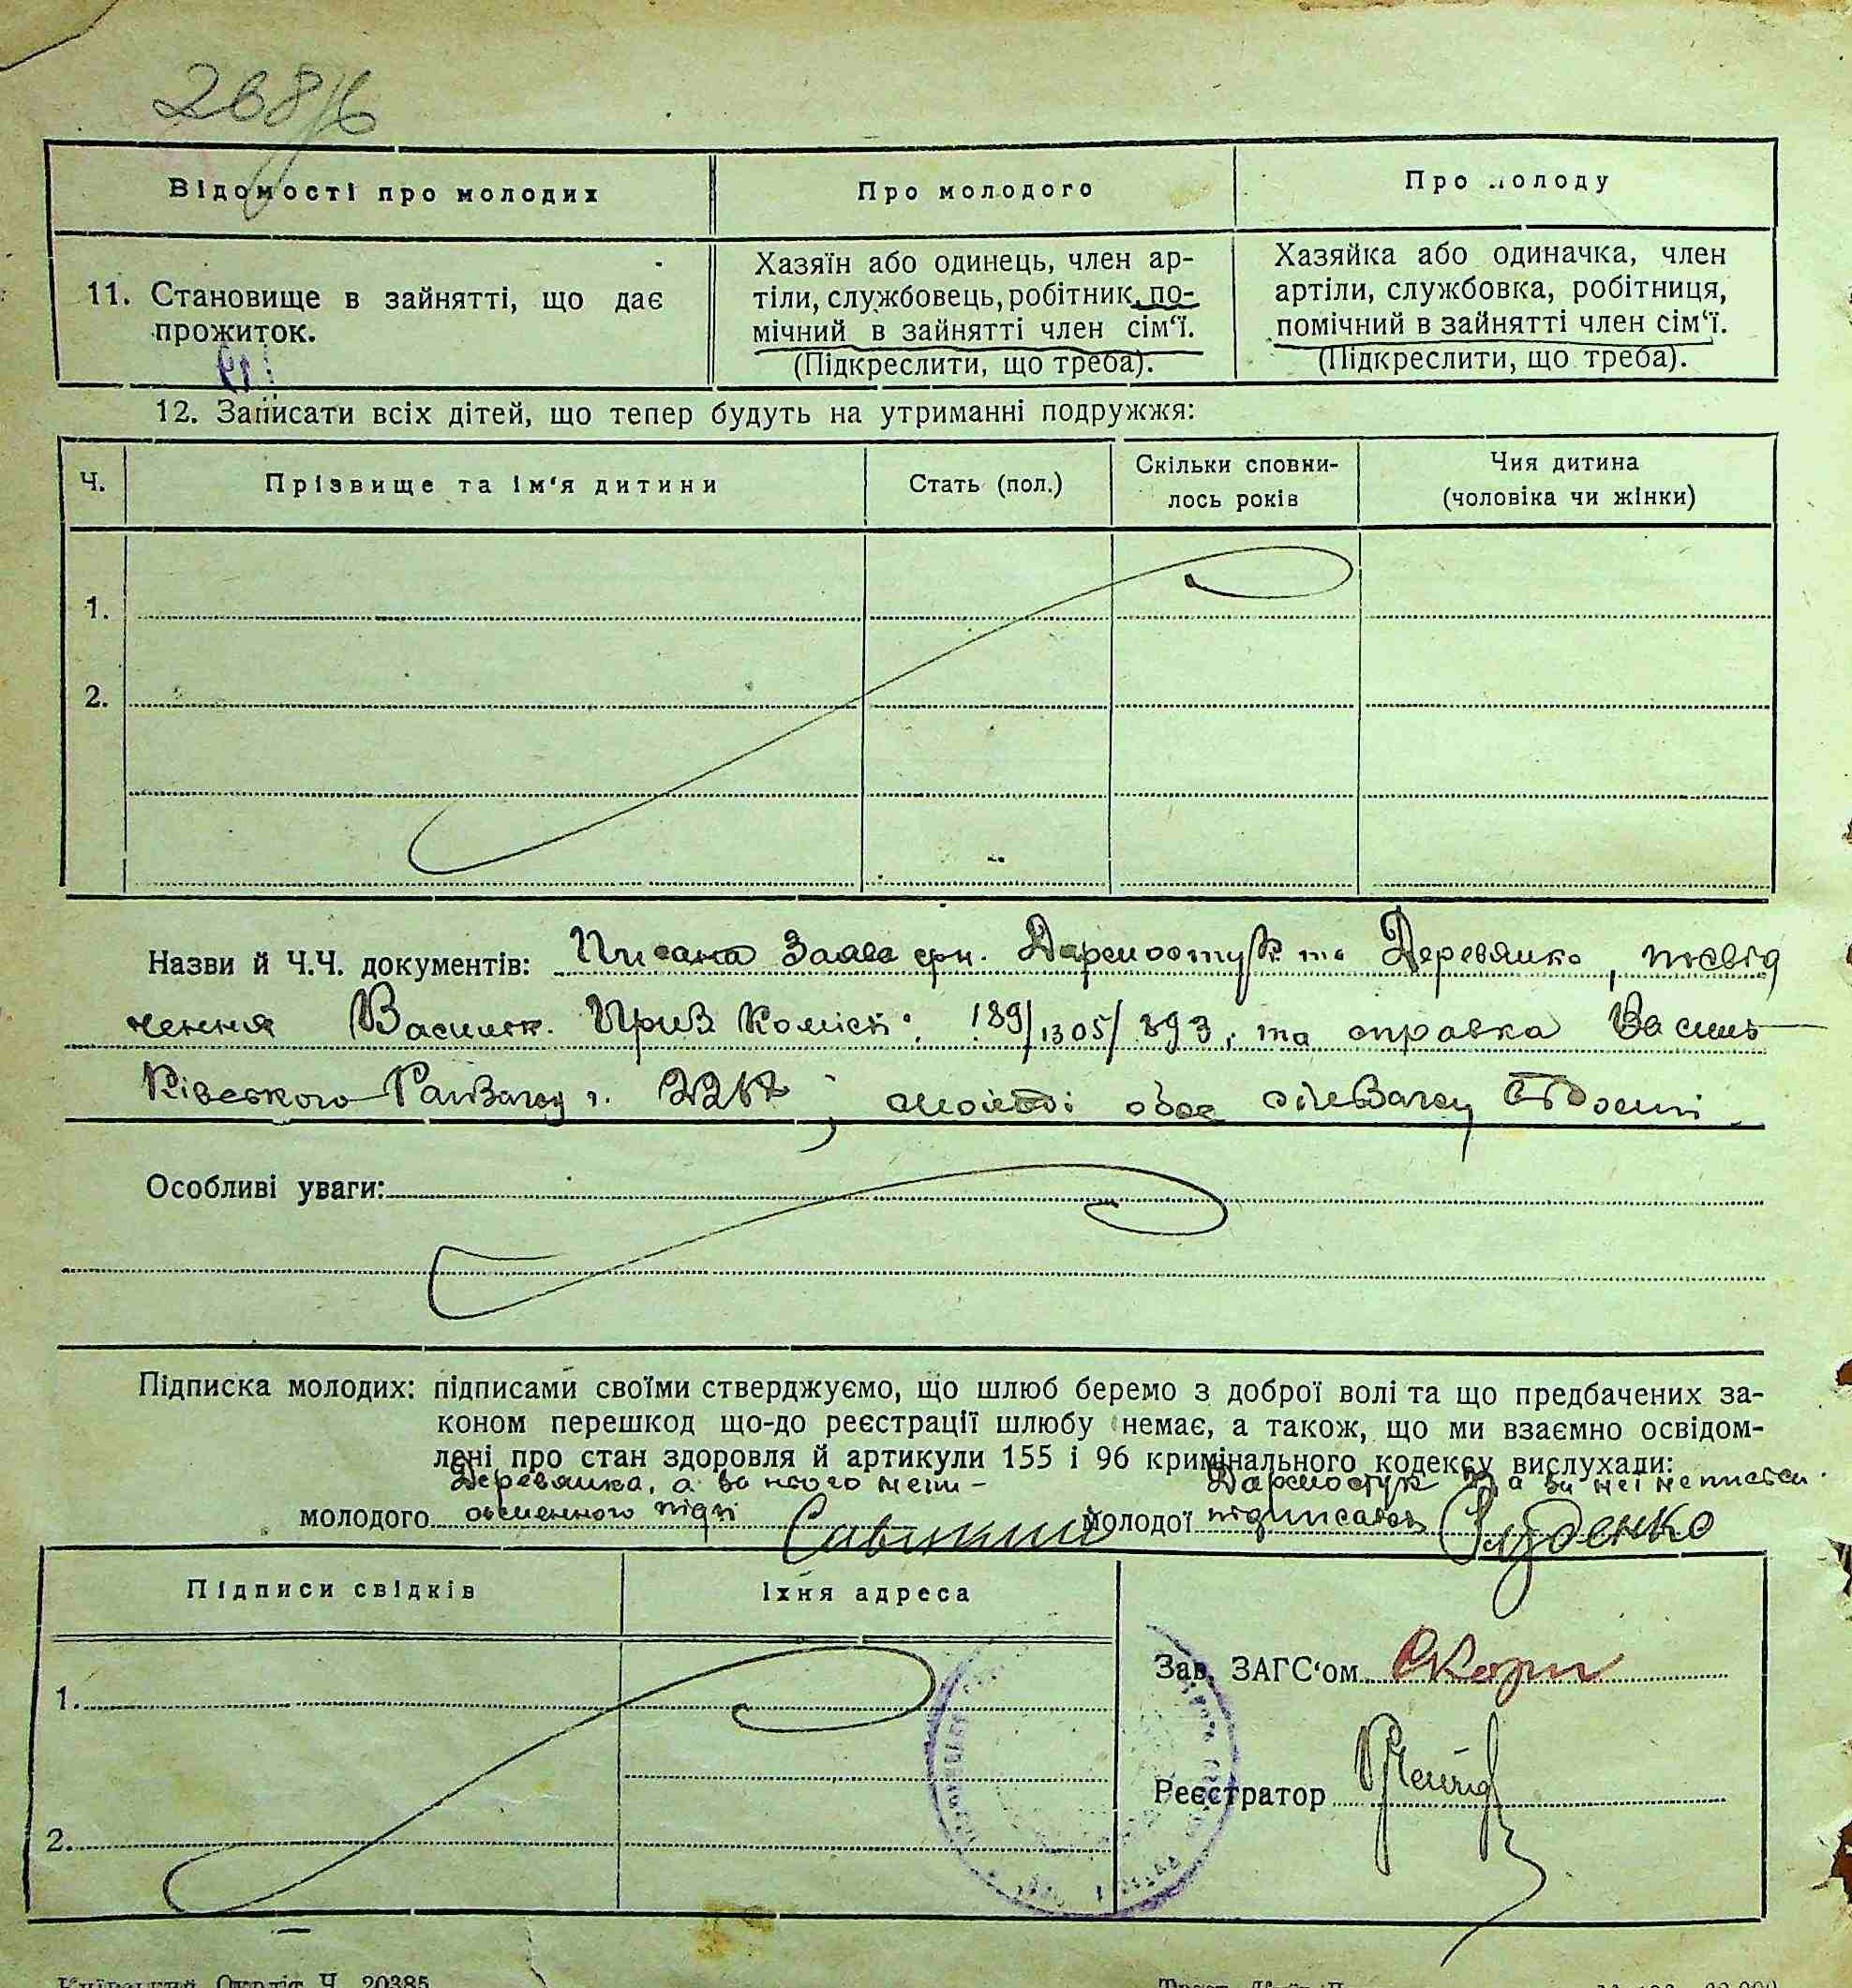 Відомості про молодих
Про молодого
Про молоду
11. Становище в зайнятті, що дає
прожиток.
Хазяїн або одинець, член ар-
тіли, службовець, робітник, по-
мічний в зайнятті член сім‘ї.
(Підкреслити, що треба).
Хазяйка або одиначка, член
артіли, службовка, робітниця,
помічний в зайнятті член сім‘ї.
(Підкреслити, що треба).
12. Записати всіх дітей, що тепер будуть на утриманні подружжя:
Ч.
Прізвище та ім‘я дитини
Стать (пол.)
Скільки сповни-
лось років
Чия дитина
(чоловіка чи жінки)
1.
2.
Назви й Ч.Ч. документів: Писана Заява гр. Дармостук та Деревянко, посвід
чення Васильк. Приз Комісії: 189/1305/893, та справка Василь
ківського
Особливі уваги:
Підписка молодих: підписами своїми стверджуємо, що шлюб беремо з доброї волі та що предбачених за-
коном перешкод що-до реєстрації шлюбу немає, а також, що ми взаємно освідом-
лені про стан здоровля й артикули 155 і 96 кримінального кодексу вислухали:
Деревянка, а за нього неп-
молодого
Дармостук а за неї неписьм.
молодої підписався Руденко
Підписи свідків
Їхня адреса
1.
2.
Зав. ЗАГС‘ом
Реєстратор
Київський Окрліт Ч. 20385